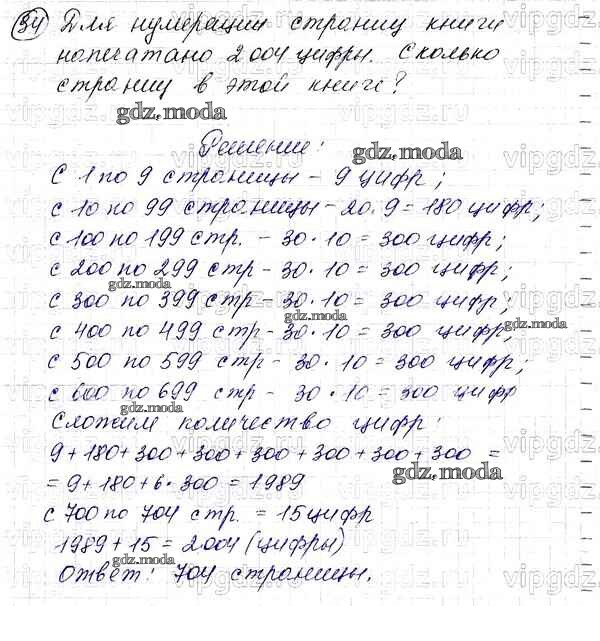 34 Для нумерации страниц книги
напечатано 2004 цифры. Сколько
страниц в этой книге?
Решение:
С 1 по 9 страницы - 9 цифр;
с 10 по 99 страницы - 20·9 = 180 цифр;
с 100 по 199 стр. - 30·10 = 300 цифр;
с 200 по 299 стр - 30·10 = 300 цифр;
с 300 по 399 стр - 30·10 = 300 цифр;
с 400 по 499 стр - 30·10 = 300 цифр;
с 500 по 599 стр - 30·10 = 300 цифр;
с 600 по 699 стр - 30·10 = 300 цифр
Сложим количество цифр:
9+180+300+300+300+300+300+300 =
= 9+180+6·300 = 1989
с 700 по 704 стр. = 15 цифр
1989 + 15 = 2004 (цифры)
Ответ: 704 страницы.
gdz.moda
gdz.moda
gdz.moda
gdz.moda
gdz.moda
gdz.moda
gdz.moda
gdz.moda
vipgdz.ru